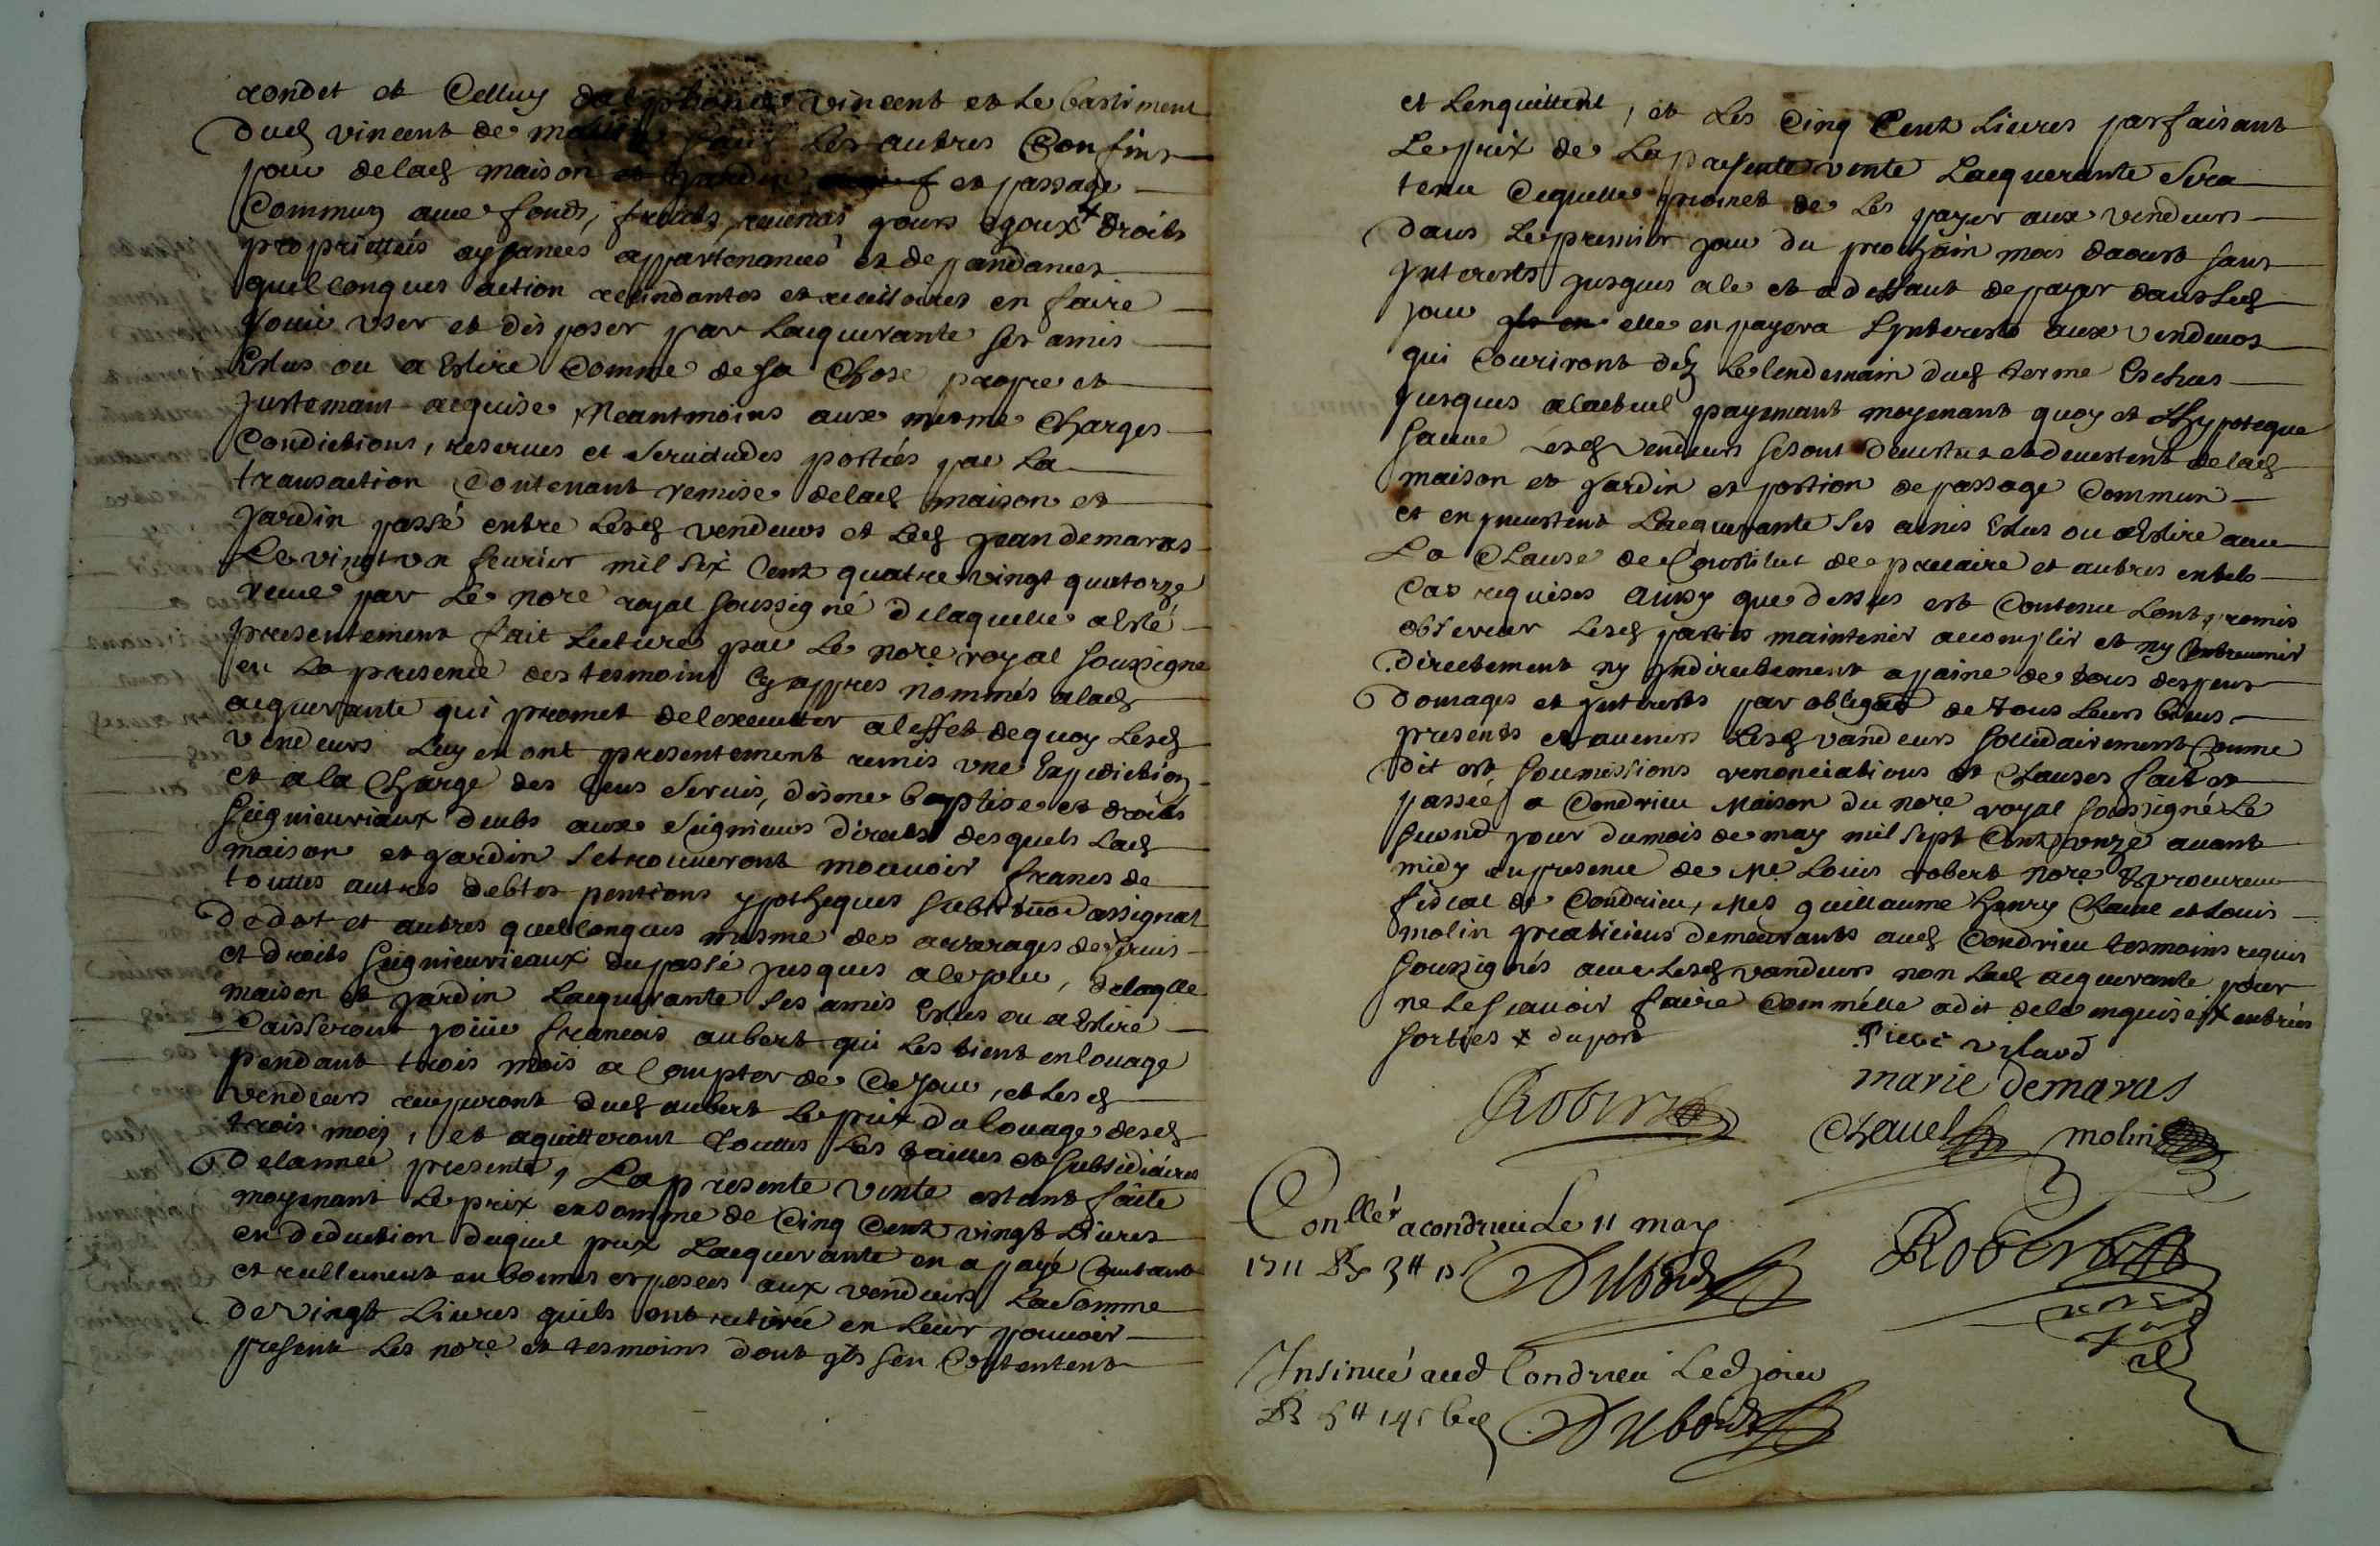 rondet et Celluy vincent et Le bastiment
dud vincent de Les autres Confins
pour delad maison et Jardin et passage
Commun avec fonds, fruits, revenus jours egoux + droits
proprietteis aysances appartenances et de pandances
quelconques action et en faire
Jouir user et disposer par Lacquerante ses amis
Eslus ou a Eslire Comme de sa Chose propre et
Justemant acquise, Neantmoins aux mesme Charges
Condictions, reserves et Servitudes portées par La
transaction Contenant remise delad maison et
Jardin passé entre Lesd vendeurs et Led jean demaras
Le vingt un feurier mil six Cent quatre vingt quatorze
receue par Le nore royal soussigné delaquelle a esté
presentement fait Lecture par Le nore royal soussigne
en La presence des tesmoins Cy appres nommés alad
acquerante qui promet delexecutter a leffet dequoy Lesd
vendeurs Luy en ont presentement remis une Expediction
et a la Charge des Cens Servis, disme baptise et droits
seignieuriaux deubs aux Seignieurs directs desquels Lad
maison et Jardin setrouveront mouvoir francs de
touttes autres debtes pentions ypotheques assignat
dedot et autres quelconques mesme des arrerages deservis
et droits seignieurieaux dupassé jusques a ce jour, delaqlle
maison et jardin Lacquerante ses amis Eslus ou a Eslire
Laisseront joüir francois aubert qui Les tient en louage
pendant trois mois a Compter de Ce jour, et Lesd
vendeurs dud aubert Le prix du louage desd
trois mois, et aquitteront touttes Les tailles et subsidiaires
delannee presente, La presente vente estant faite
moyenant Le prix et somme de Cinq Cent vingt Livres
en deduction duquel prix Lacquerante en a payé Contant
et reellement en bonnes espeses aux vendeurs La somme
de vingt Livres quils ont retirée en Leur pouvoir
present Les nore et tesmoins dont ils sen Contentent
et Lenquittent, et Les Cinq Cent Livres parfaisant
Le prix de La presente vente Lacquerante sera
tenue Cequelle promet de Les payer aux vendeurs
dans Le premier jour du prochain mois daoust sans
Interests jusques a ce et a deffaut de payer dans Led
jour elle en payera Lynterests aux vendeurs
qui Couriront déz Le lendemain dud terme Eschus
jusques alactuel payemant moyenant quoy et Lhypoteque
sauve Lesd vendeurs sesont devestus et devestent delad
maison et Jardin et portion de passage Commun
et en jnvestent Lacquerante ses amis Eslus ou aEslire avec
La Clause de Constitut de precaire et autres entels
Cas requises ainsy que dessus est Contenu Lont promis
observer Lesd parties maintenir accomplir et ny Contrevenir
directement ny yndirectement a paine de tous despens
domages et ynterests par obligaõ de tous Leurs biens
presents et avenirs Lesd vandeurs sollidairement Comme
dit est, soumissions renonciations et Clauses fait et
passée a Condrieu Maison du nore royal soussigné Le
second jour dumois de may mil sept Cent onze avant
midy en presence de Me Louis robert nore & procureur
fiscal de Condrieu, Mes guillaume henry Chavel et Louis
molin praticiens demeurants aud Condrieu tesmoins requis
soussignés avec Lesd vandeurs non Lad acquerante pour
ne Le scavoir faire Comm'elle a dit dece enquise X entrées
sorties X duport
Pierre vilard
marie demaras
Robert
Chavel molin
Conllér a condrieu Le 11 may
1711 Rx 3tt
Dubois
Robert
nore
royal
Insinué aud Condrieu Led jour
R 5tt 14s 6d
Dubois